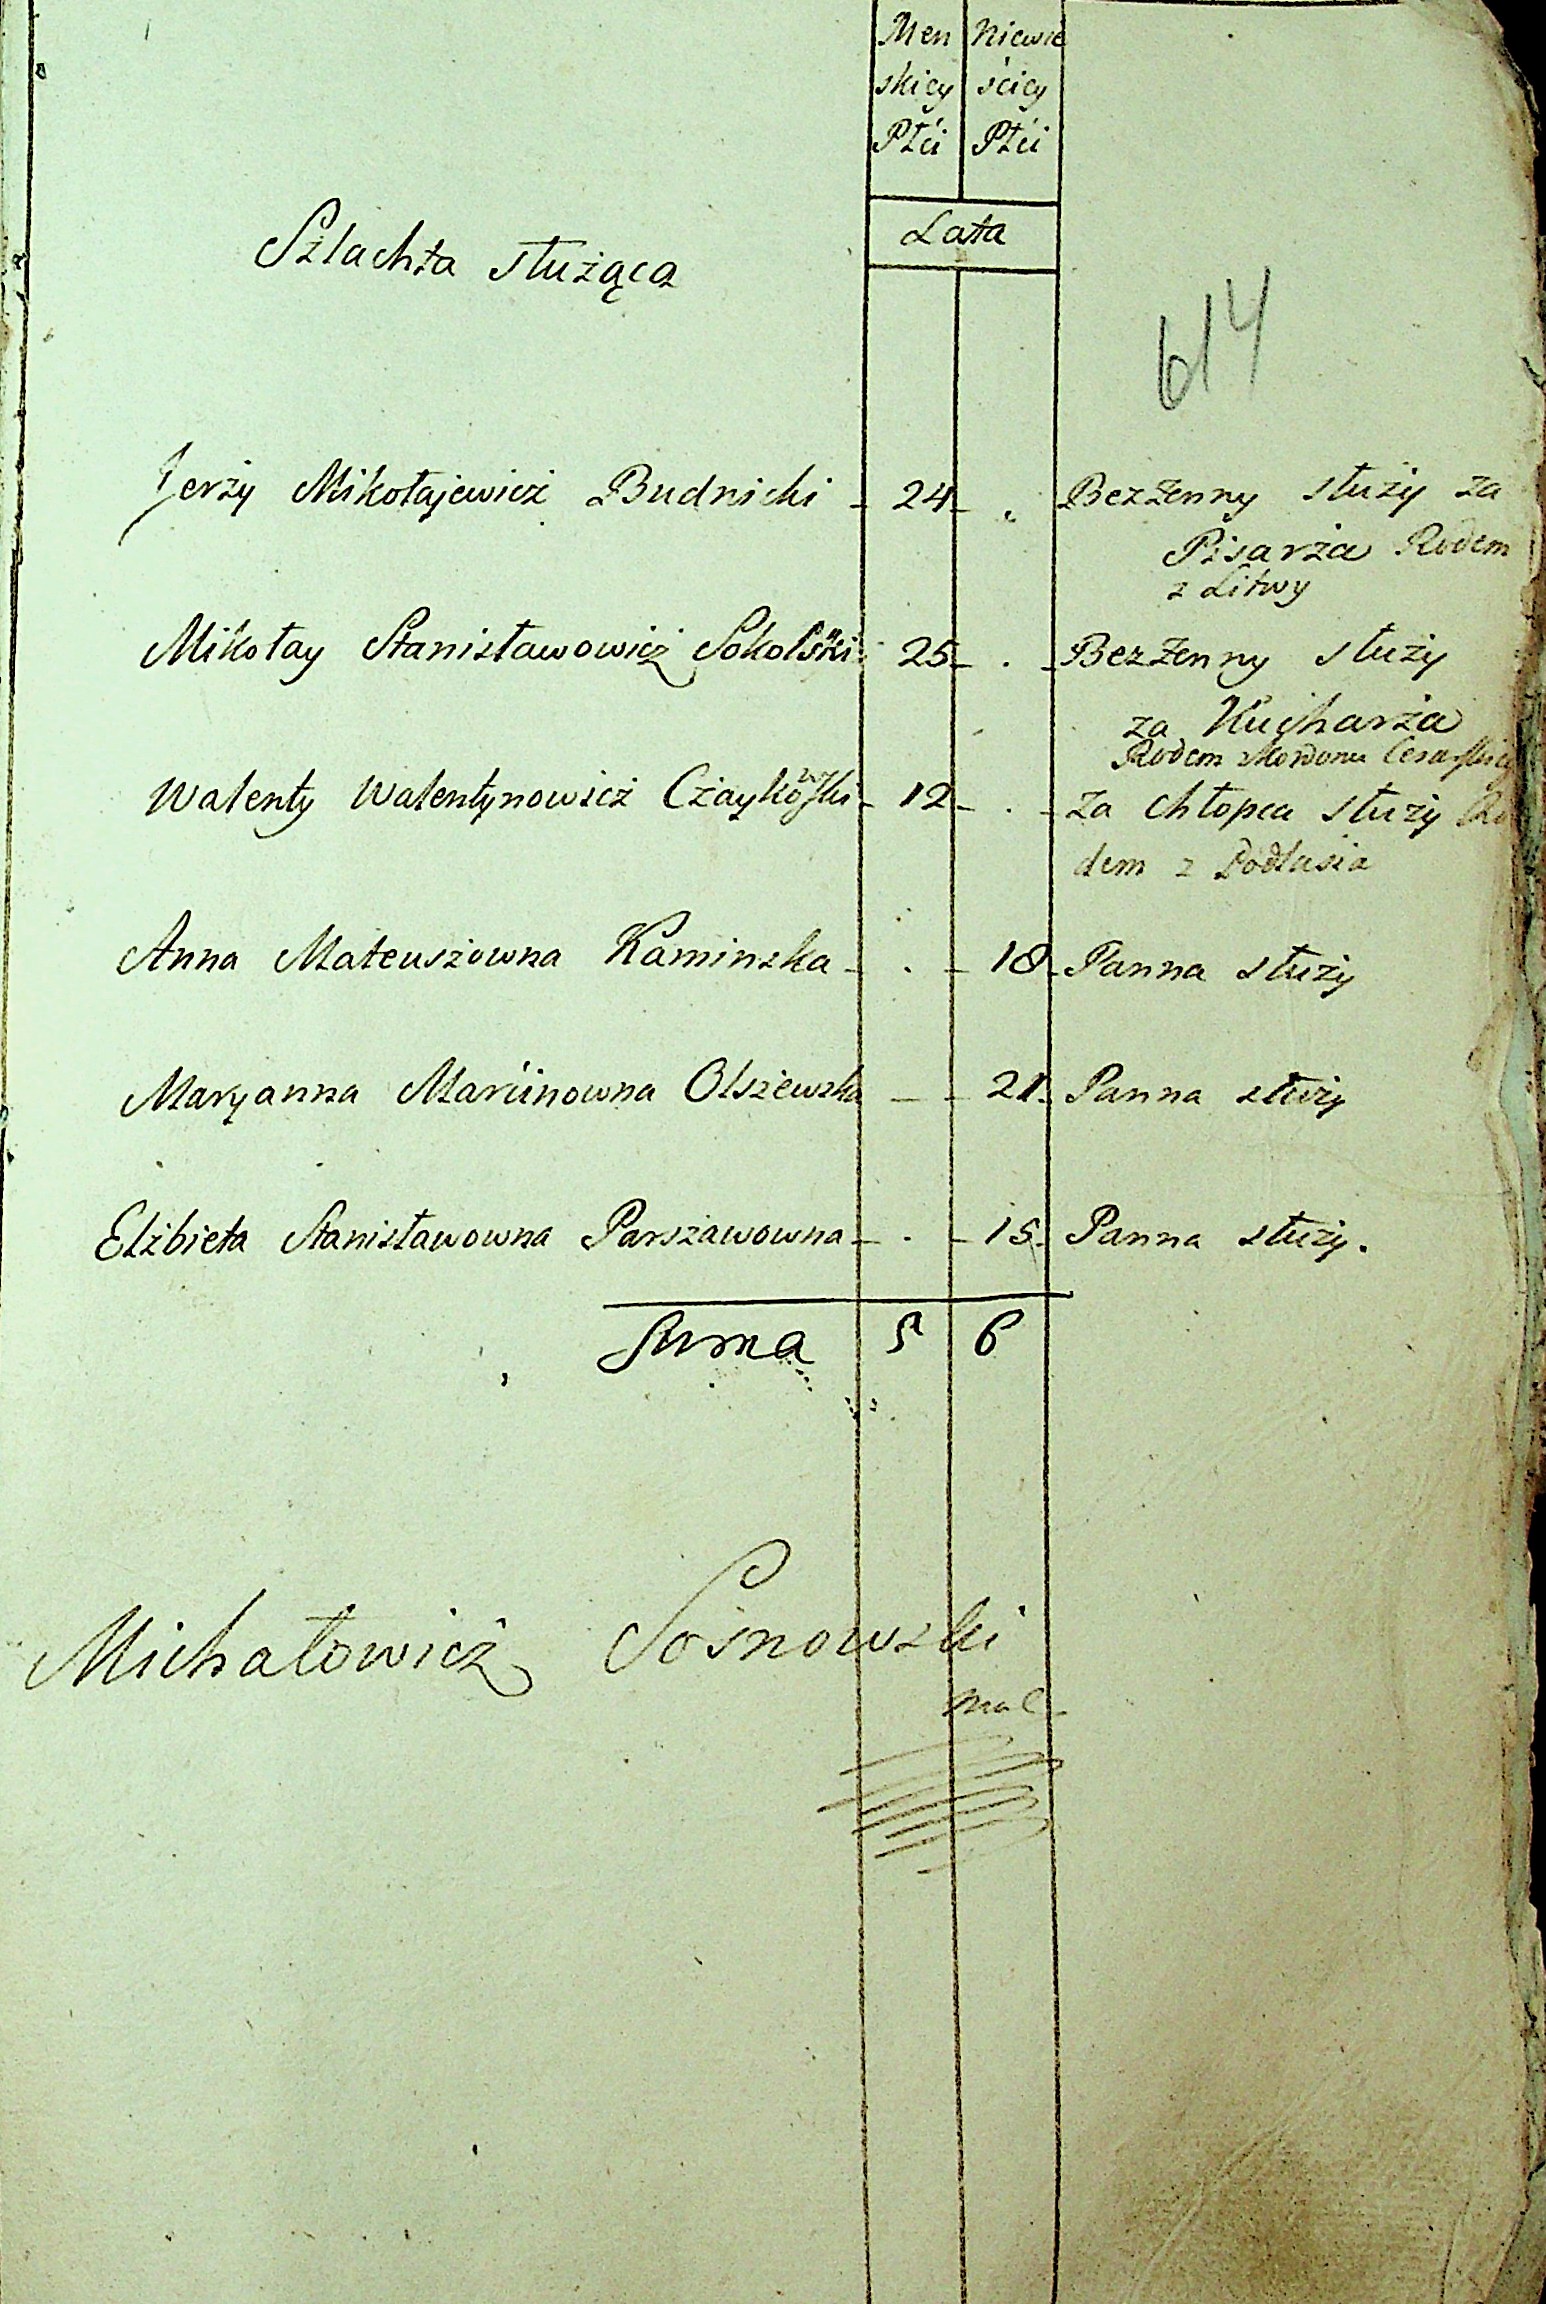 Men Niewie
skiey ściey
Płći Płći
Lata
Szlachta służąca
614
Jerży Mikołajewicż Budnicki - 24 - „ Bezżenny służy za
Pisarża Rodem
z Litwy
Mikołay Stanisławowicż Sokolski 25 - . - Bezżenny służy
za Kucharża
Rodem
Walenty Walentynowicż Cżaykowski - 12 - . - Za chłopca służy Ro
dem z Podlasia
Anna Mateuszowna Kaminska - . - 18 - Panna służy
Maryanna Marcinowna Olszewska - - 21 - Panna służy
Elżbieta Stanisławowna Parszawowna - . - 15 - Panna służy.
Suma 5 6
Michałowicż Sosnowski